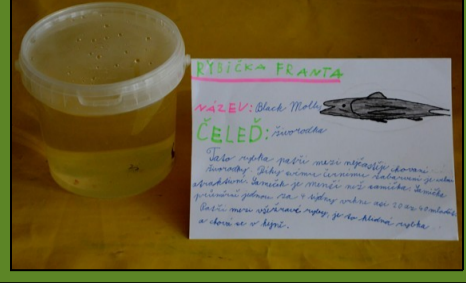 RYBIČKA FRANTA
NÁZEV: Black Molly
ČELEĎ: živorodka
Tato rybka patří mezi nejčastěji chované
živorodky. Díky svému černému zabarvení je velmi
atraktivní. Sameček je menší než samička. Samička
průměrně jednou za 4 týdny vrhne asi 20 až 40 mláďat.
Patří mezi všežravé ryby, je to klidná rybka
a chová se v hejně.